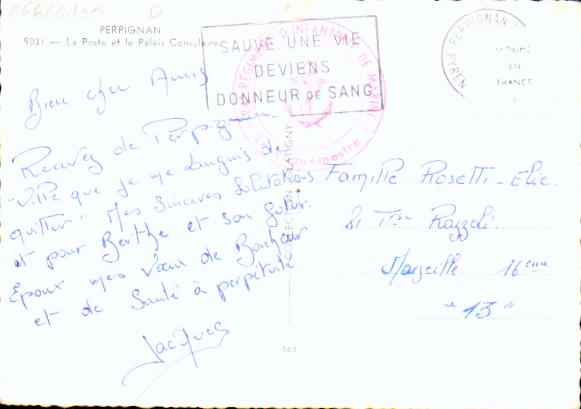 06600100 D
PERPIGNAN
9031 — La Poste et le Palais Consulaire
SAUVE UNE VIE
DEVIENS
DONNEUR DE SANG
REGIMENT D'INFANTERIE DE MARINE
Le Vaguemestre
PERPIGNAN
EN
FRANCE
Bien cher Amis
Recevez de Perpignan
"Ville que je me languis de
quitter" Mes Sinceres Salutations
et pour Berthe et son futur
Epoux mes Vœux de Bonheur
et de Santé à perpétuité
Jacques
COLLECTION
Famille Rosetti - Elie.
81 Tse Razzoli.
Marseille 16eme
"13"